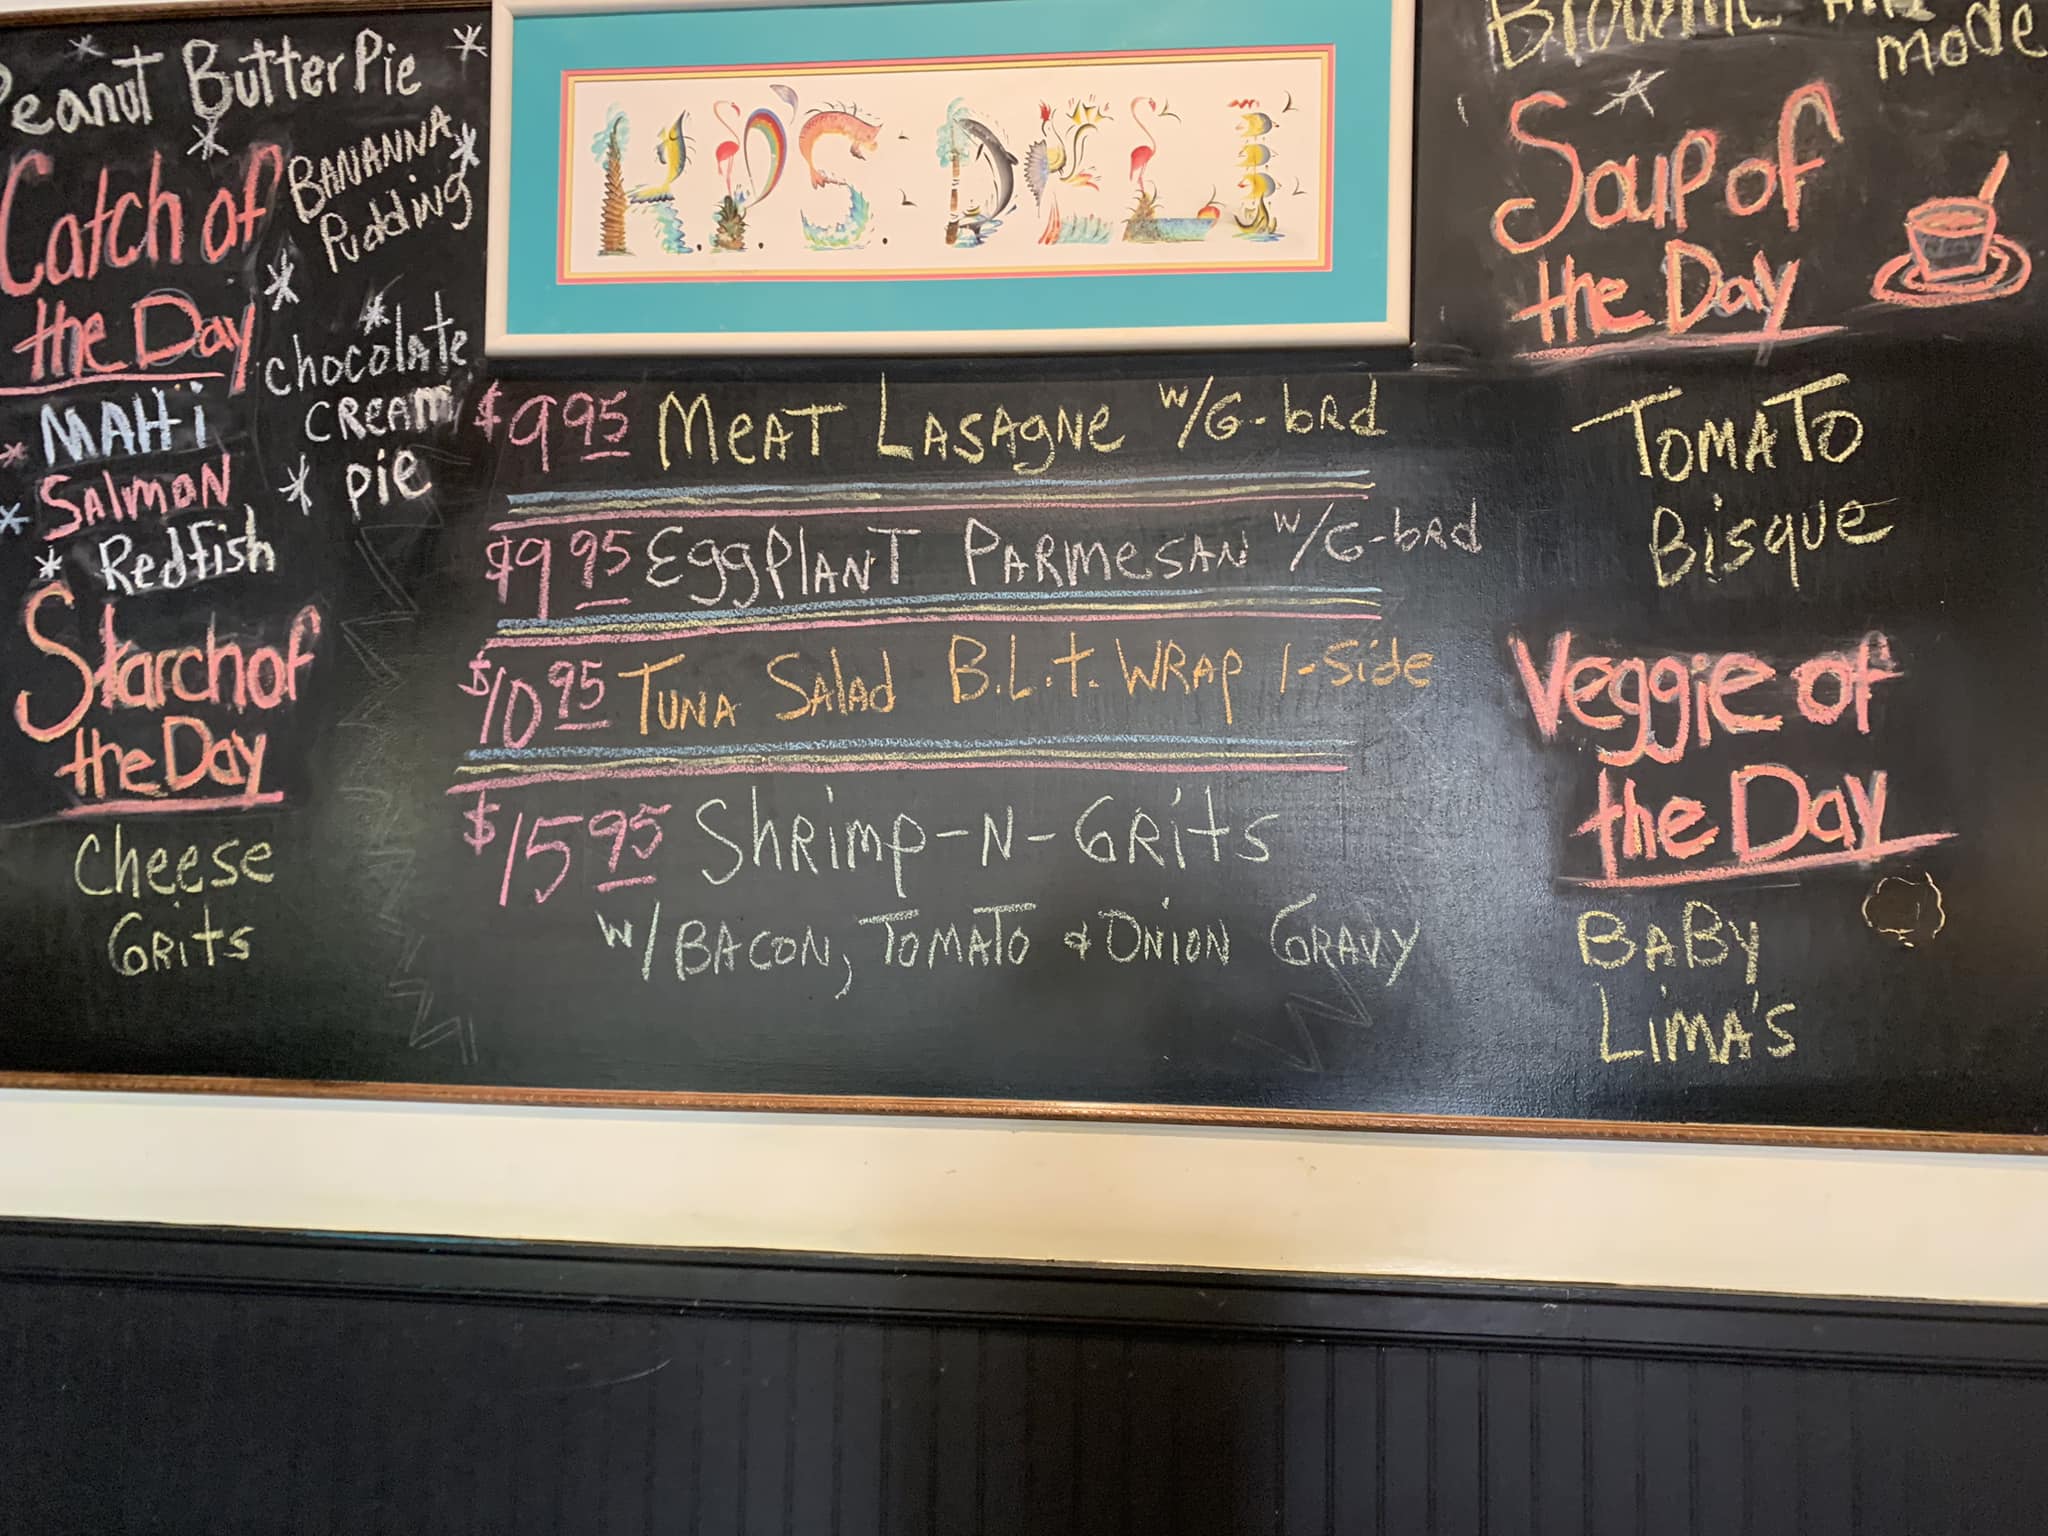 Peanut Butter Pie
BANANNA
Pudding
chocolate
cream
pie
Catch of
the Day
MAHi
SALmoN
Redfish
Starch of
the Day
Cheese
Grits
K.P.'S. DELI
$9.95 Meat Lasagne w/G-brd
$9.95 Eggplant Parmesan w/G-brd
$10.95 Tuna Salad B.L.t. Wrap 1-Side
$15.95 Shrimp-N-Grits
w/Bacon, Tomato & Onion Gravy
Brownie
mode
Soup of
the Day
Tomato
Bisque
Veggie of
the Day
Baby
Lima's